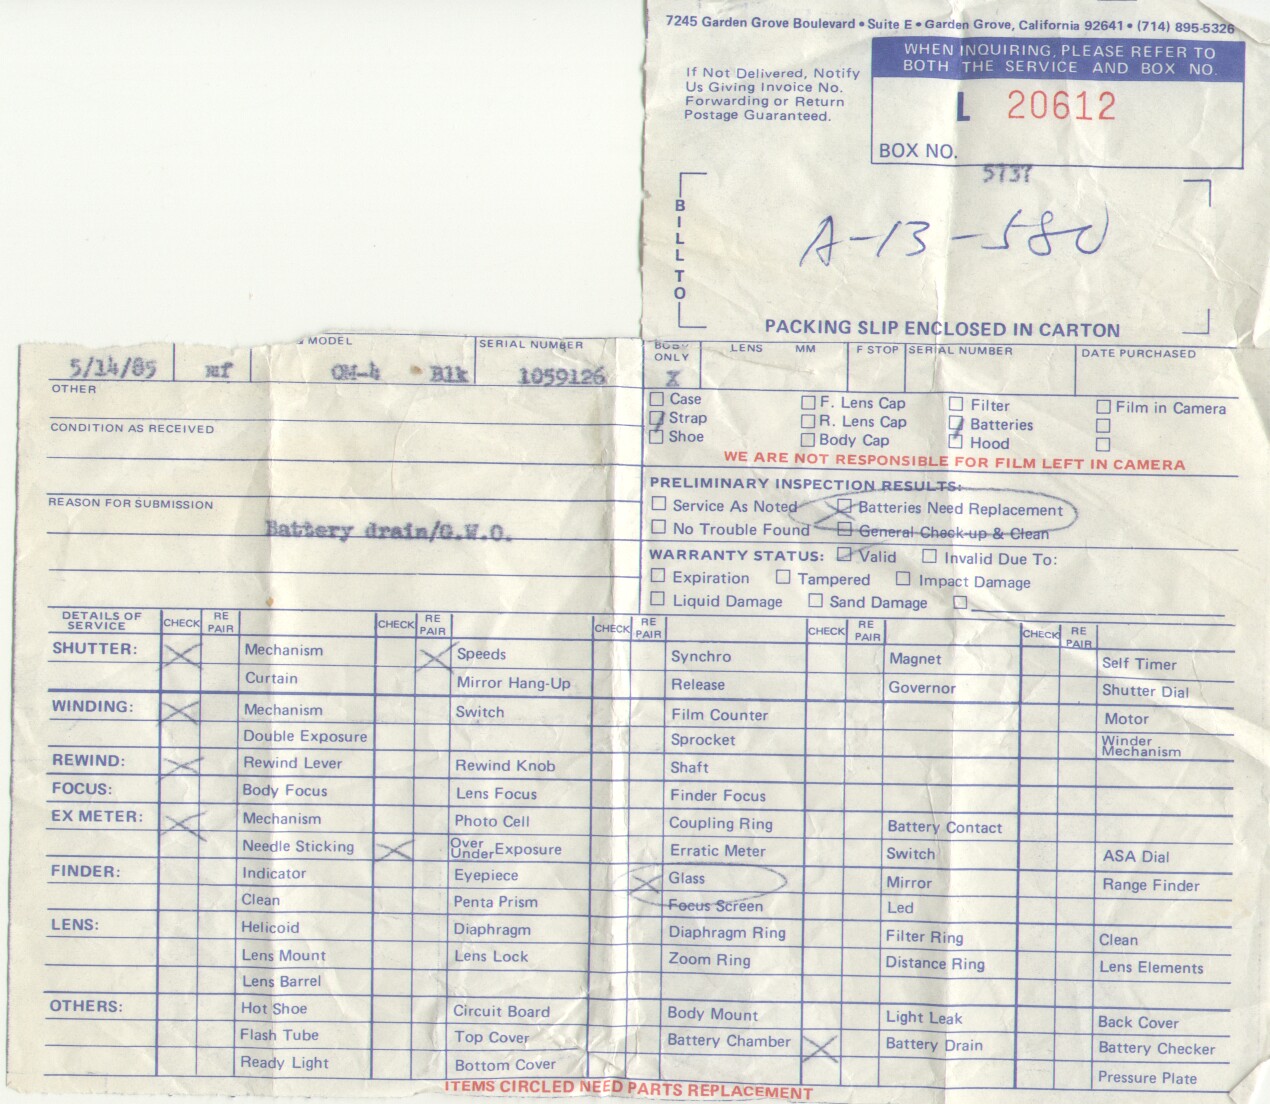 7245 Garden Grove Boulevard • Suite E • Garden Grove, California 92641 • (714) 895-5326
WHEN INQUIRING, PLEASE REFER TO
BOTH THE SERVICE AND BOX NO.
If Not Delivered, Notify
Us Giving Invoice No.
Forwarding or Return
Postage Guaranteed.
L 20612
BOX NO.
5737
BILL TO
A-13-580
PACKING SLIP ENCLOSED IN CARTON
MODEL SERIAL NUMBER BODY ONLY LENS MM F STOP SERIAL NUMBER DATE PURCHASED
5/14/85 OM-4 Blk 1059126 X
OTHER
CONDITION AS RECEIVED
REASON FOR SUBMISSION
Battery drain/G.W.O.
Case F. Lens Cap Filter Film in Camera
Strap R. Lens Cap Batteries
Shoe Body Cap Hood
WE ARE NOT RESPONSIBLE FOR FILM LEFT IN CAMERA
PRELIMINARY INSPECTION RESULTS:
Service As Noted Batteries Need Replacement
No Trouble Found General Check-up & Clean
WARRANTY STATUS: Valid Invalid Due To:
Expiration Tampered Impact Damage
Liquid Damage Sand Damage
DETAILS OF SERVICE CHECK RE PAIR CHECK RE PAIR CHECK RE PAIR CHECK RE PAIR CHECK RE PAIR
SHUTTER: Mechanism Speeds Synchro Magnet Self Timer
Curtain Mirror Hang-Up Release Governor Shutter Dial
WINDING: Mechanism Switch Film Counter Motor
Double Exposure Sprocket Winder Mechanism
REWIND: Rewind Lever Rewind Knob Shaft
FOCUS: Body Focus Lens Focus Finder Focus
EX METER: Mechanism Photo Cell Coupling Ring Battery Contact
Needle Sticking Over Under Exposure Erratic Meter Switch ASA Dial
FINDER: Indicator Eyepiece Glass Mirror Range Finder
Clean Penta Prism Focus Screen Led
LENS: Helicoid Diaphragm Diaphragm Ring Filter Ring Clean
Lens Mount Lens Lock Zoom Ring Distance Ring Lens Elements
Lens Barrel
OTHERS: Hot Shoe Circuit Board Body Mount Light Leak Back Cover
Flash Tube Top Cover Battery Chamber Battery Drain Battery Checker
Ready Light Bottom Cover Pressure Plate
ITEMS CIRCLED NEED PARTS REPLACEMENT